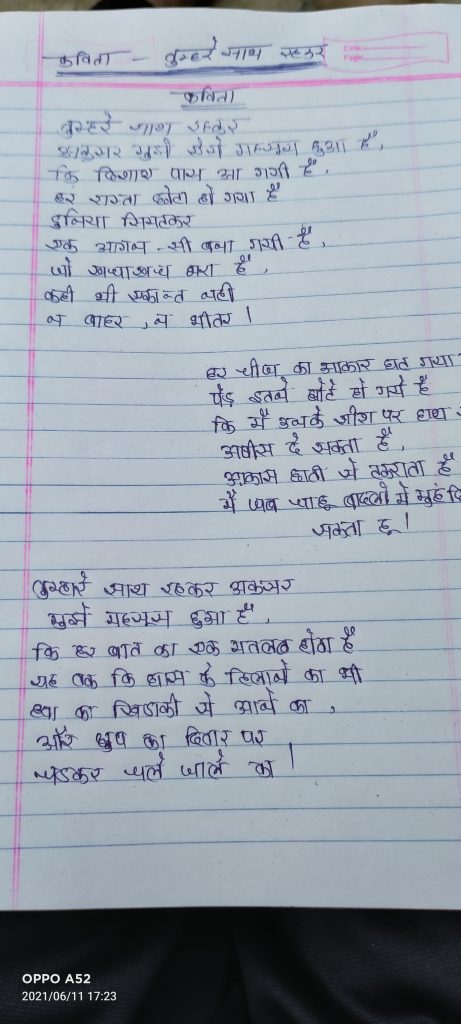 कविता - तुम्हारे साथ रहकर
Date
Page
कविता
तुम्हारे साथ रहकर
मुझे ऐसे महसूस हुआ है,
कि दिशाए पास आ गयी है,
हर रास्ता छोटा हो गया है
दुनिया सिमटकर
एक आगन - सी बन गयी है,
जो खचाखच भरा है,
कही भी एकान्त नही
न बाहर, न भीतर।
हर चीज का आकार घट गया
पेड इतने छोटे हो गये है
कि मै उनके शीश पर हाथ
आशीस दे सकता है,
आकास छाती से टकराता है
मै जब चाहू बादलो मे मुहं
सकता हू।
तुम्हारे साथ रहकर अकसर
मुझे महसूस हुआ है,
कि हर बात का एक मतलब होता है
यह तक कि घास के हिलाने का भी
हवा का खिडाकी से आने का,
और धुप का दिवार पर
चडकर चले जाले का।
OPPO A52
2021/06/11 17:23